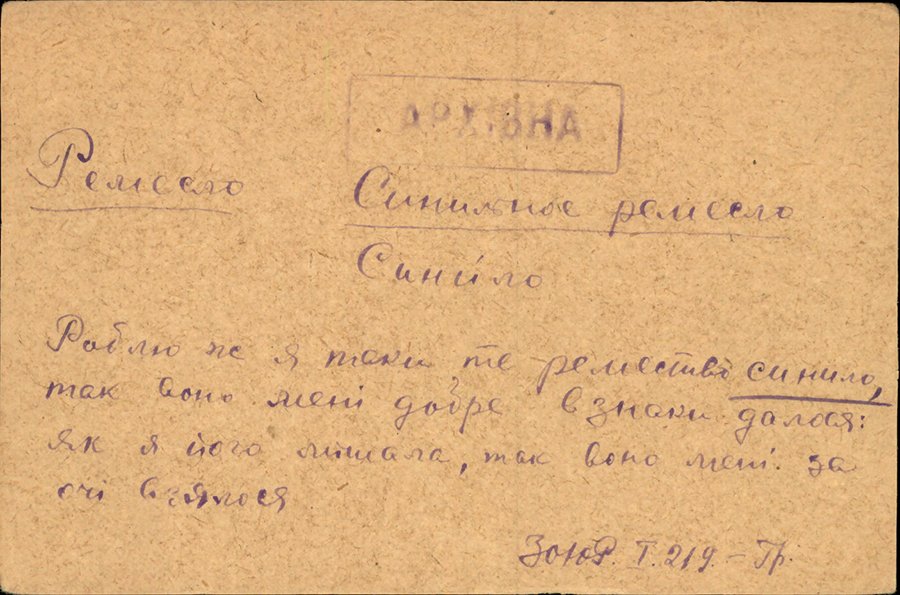 АРХІВНА
Ремесло
Синильное ремесло
Сини́ло
Роблю ж я таки те ремество синило,
так воно мені добре взнаки далося:
як я його мішала, так воно мені за
очі взялося
ЗОЮР. I. 219. – Гр.